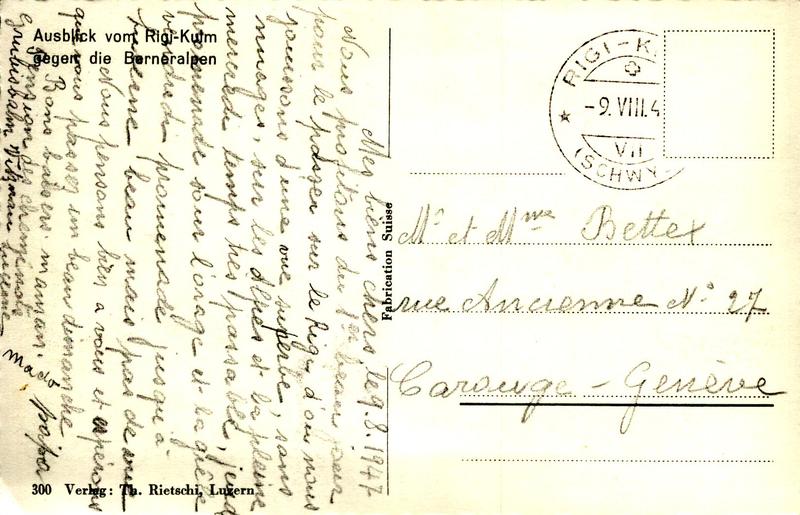 Ausblick vom Rigi-Kulm
gegen die Berneralpen
Mes biens chers, le 9.8.1947
Nous profitons du 1er beau jour
pour le passer sur le Rigi d'où nous
jouissons d'une vue superbe, sans
nuages, sur les Alpes et la plaine
mercredi temps très passable, jeudi
promenade sous l'orage et la grêle
vendredi promenade jusqu'à
Lucerne beau mais pas de vue
Nous pensons bien à vous et espérons
que vous passez un beau dimanche
Bons baisers. maman.
papa
Mado
Pension des
Vitznau Lucerne
300 Verlag: Th. Rietschi, Luzern
Fabrication Suisse
RIGI-K
-9.VIII.4
VII
(SCHWY
Mr et Mme Bettex
rue Ancienne No 27
Carouge - Genève